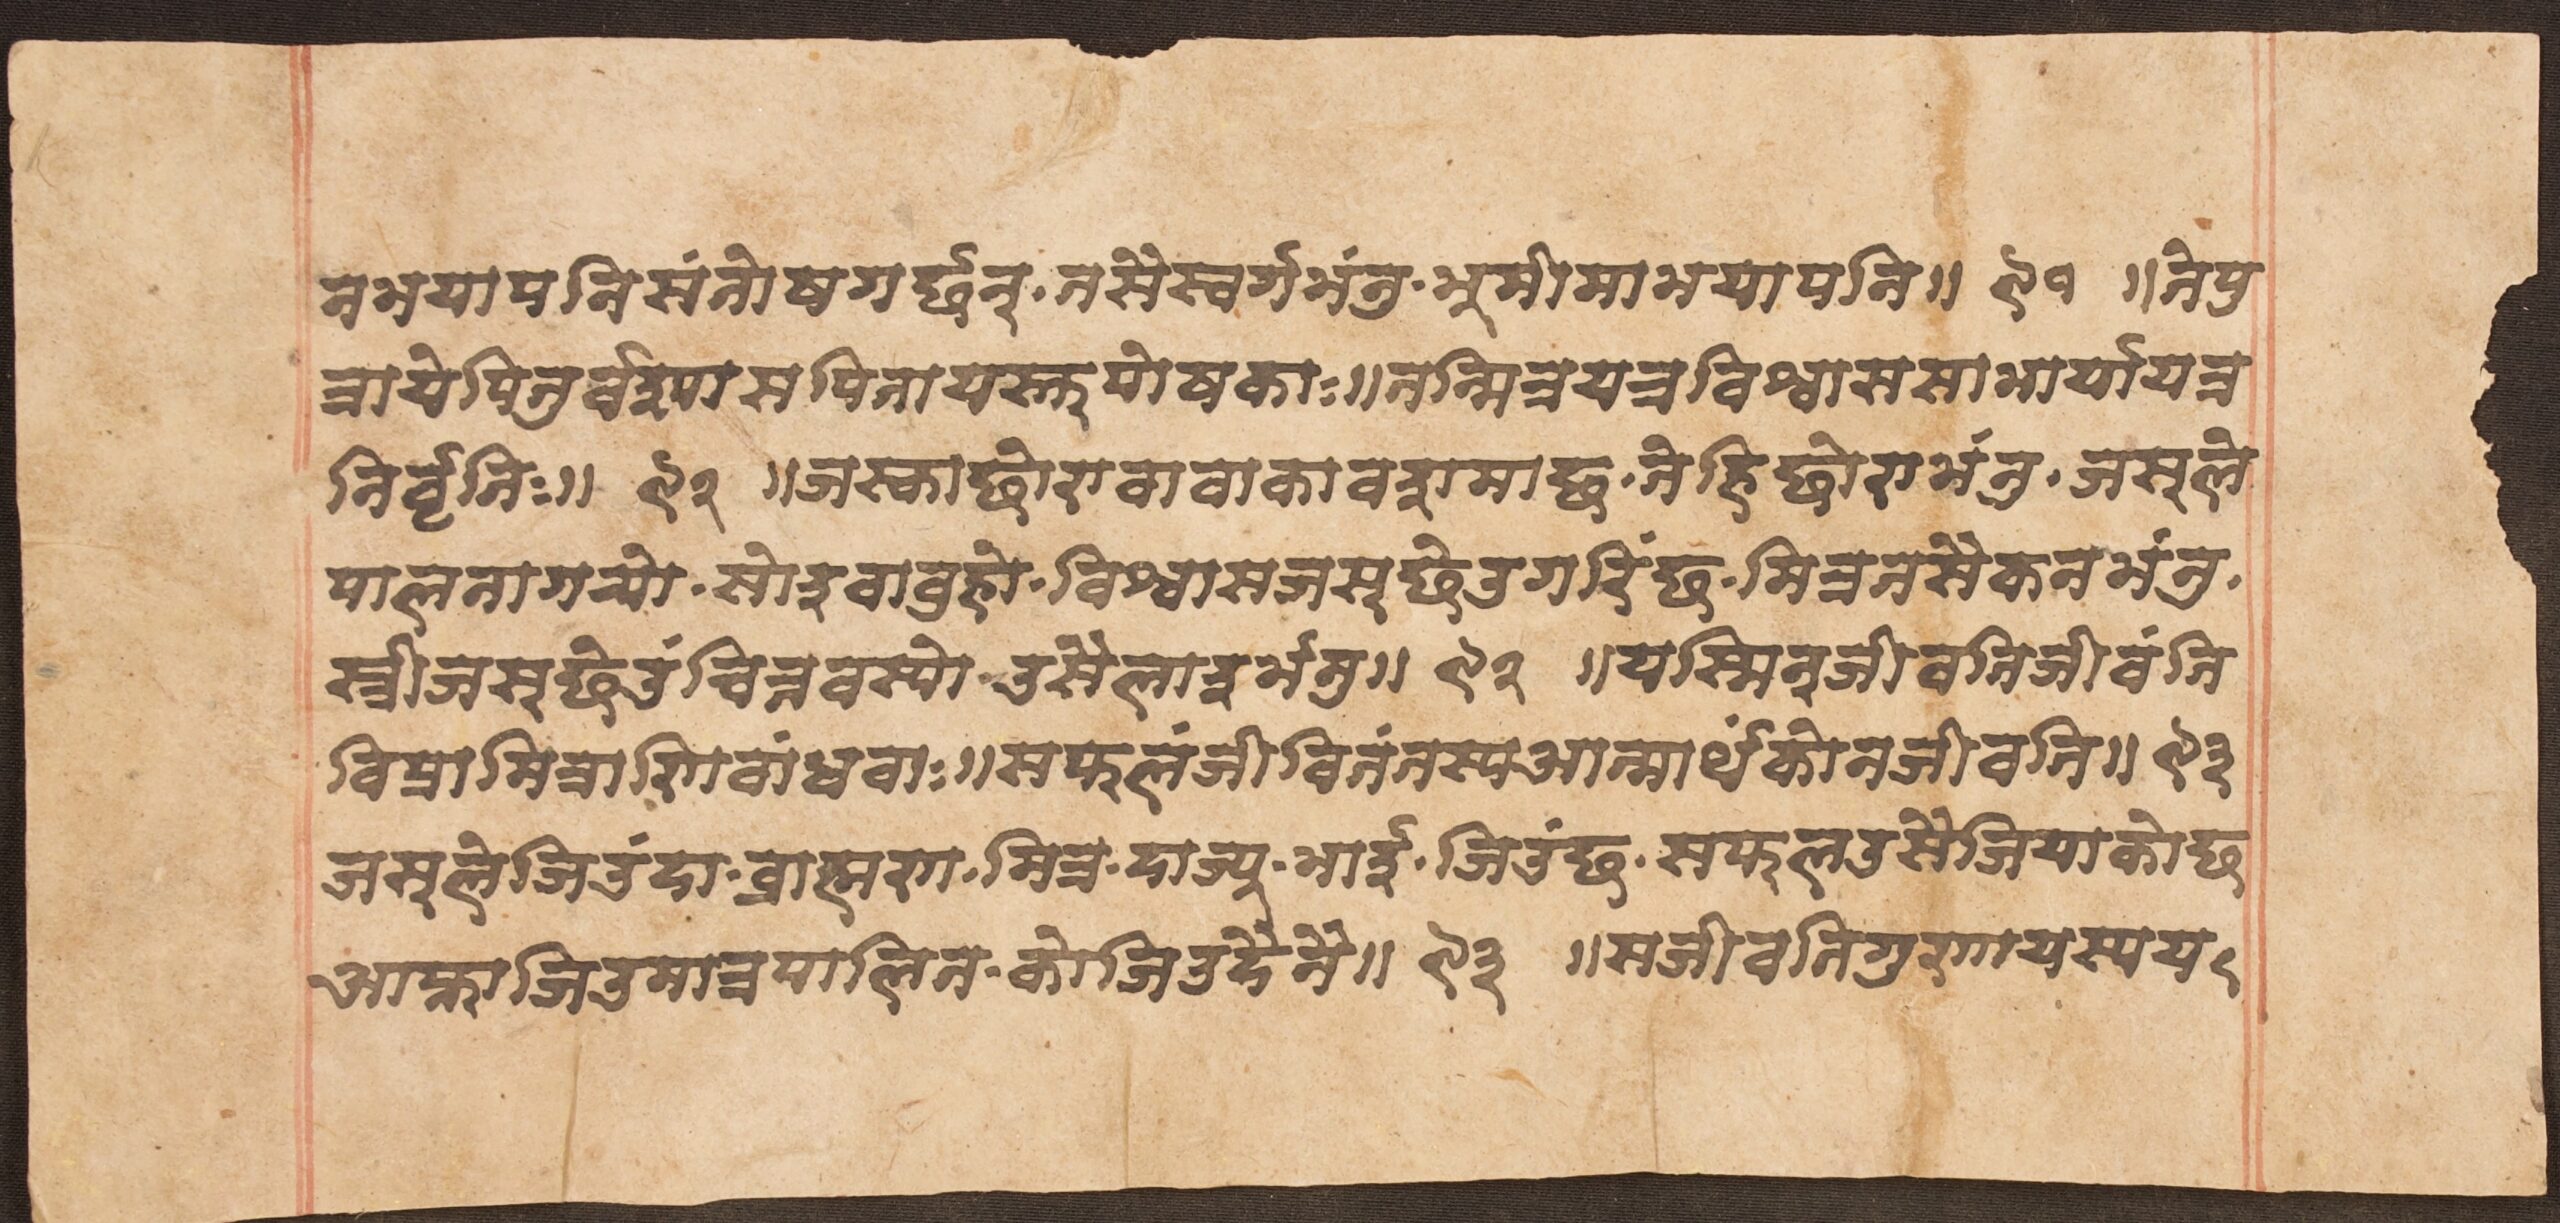 तभयापनिसंतोषगर्छन्·तसैस्वर्गभंनु·भूमीमाभयापनि॥ ९१ ॥तेपु
त्रायेपितुर्वश्यासपितायस्तुपोषकाः॥तन्मित्रयत्रविश्वाससाभार्यायत्र
निर्वृतिः॥ ९२ ॥जस्काछोरावावाकावश्मामाछ·तेहिछोराभंनु·जस्ले
पालनागर्‍यो·सोइवावुहो·विश्वासजस्छेउगरिंछ·मित्रतसैकनभंनु·
स्त्रीजस्छेउंचित्तवस्यो·उसैलाइभंनु॥ ९२ ॥यस्मिन्जीवतिजीवंति
विप्रामित्राणिवांधवाः॥सफलंजीवितंतस्यआत्मार्थंकोनजीवति॥ ९३
जस्लेजिउंदा·व्राह्मण·मित्र·दाज्यु·भाई·जिउंछ·सफलउसैजियाकोछ
आफ्नाजिउमात्रपालिन·कोजिउदैनै॥ ९३ ॥सजीवतिगुणायस्यय